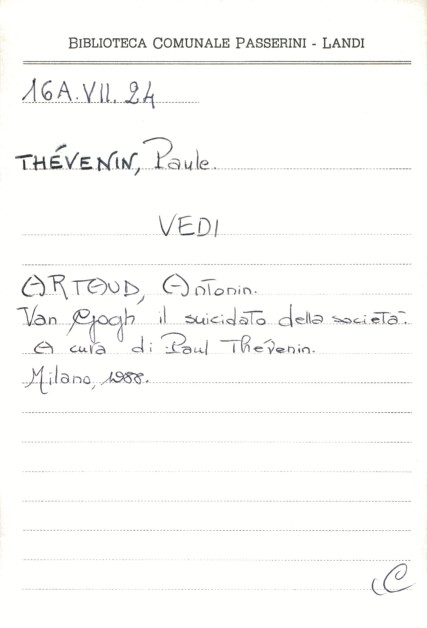 BIBLIOTECA COMUNALE PASSERINI - LANDI
16A.VII.24
THÉVENIN, Paule.
VEDI
ARTAUD, Antonin.
Van Gogh il suicidato della società.
A cura di Paul Thévenin.
Milano, 1988.
C